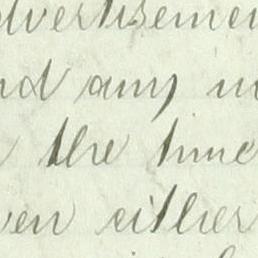 advertisemen
nd any in
the time
ven either